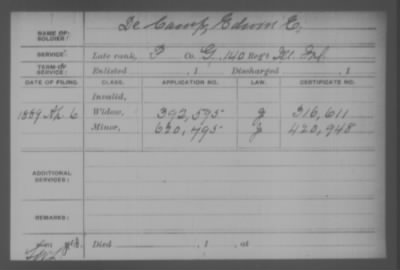 NAME OF SOLDIER: De Camp, Edwin E,
SERVICE: Late rank, P Co. G, 140 Reg't Ill. Inf.
TERM OF SERVICE: Enlisted , 1 Discharged , 1
DATE OF FILING. CLASS. APPLICATION NO. LAW. CERTIFICATE NO.
Invalid,
1889 Ap. 6 Widow, 392,595 J 316,611
Minor, 620,795 J 420,948
ADDITIONAL SERVICES:
REMARKS:
Died , 1 , at